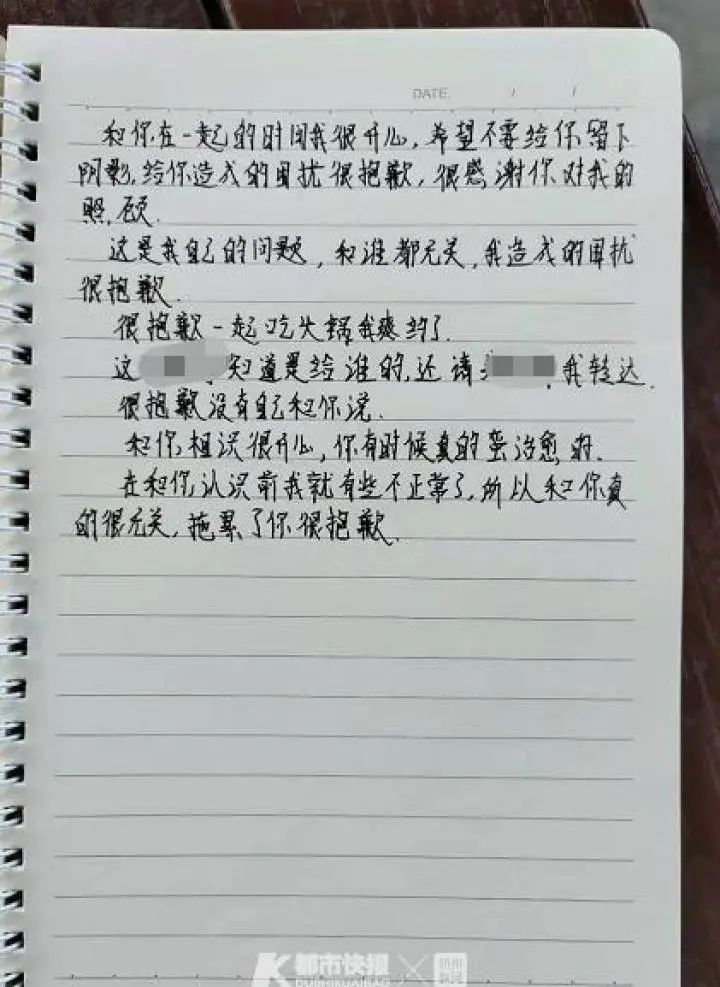 DATE / /
和你在一起的时间我很开心，希望不要给你留下
阴影，给你造成的困扰很抱歉，很感谢你对我的
照顾．
这是我自己的问题，和谁都无关，我造成的困扰
很抱歉．
很抱歉一起吃火锅我爽约了．
这 知道是给谁的，还请 ，我转达．
很抱歉没有自己和你说．
和你相识很开心，你有时候真的蛮治愈的．
在和你认识前我就有些不正常了，所以和你真
的很无关，拖累了你很抱歉．
都市快报 × 杭州新闻